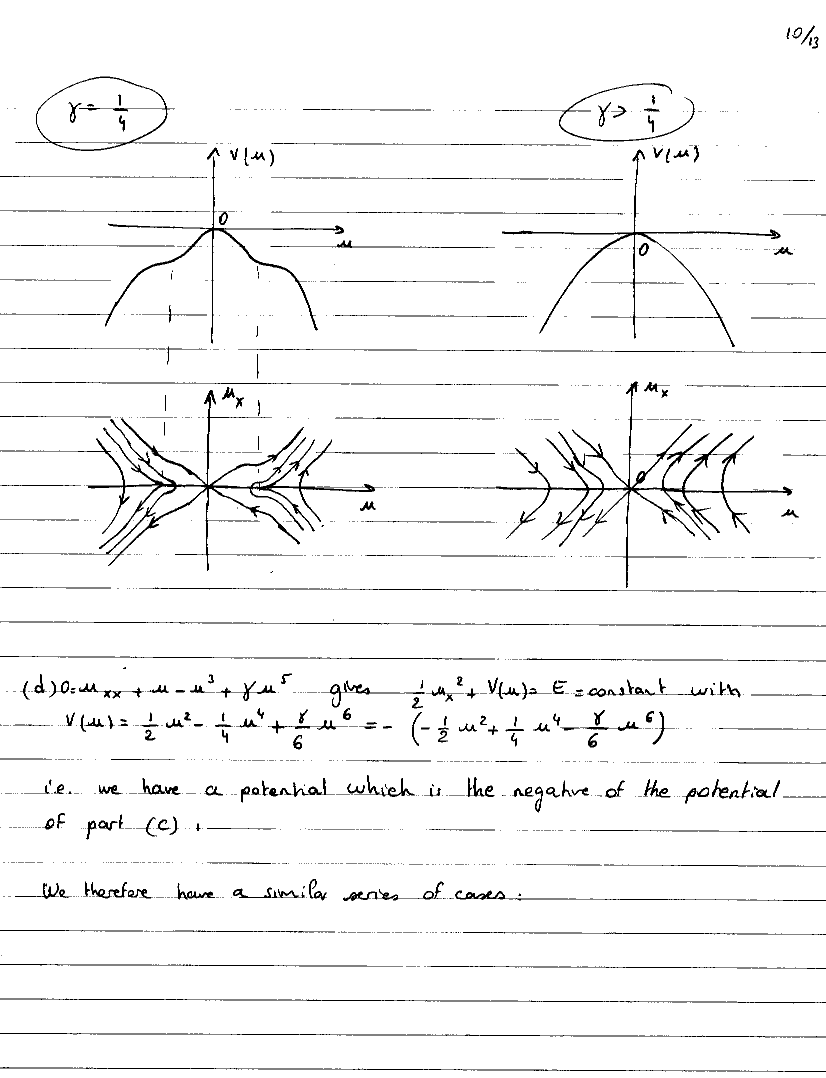 10/13
γ = 1/4
γ > 1/4
V(u)
V(u)
0
u
0
u
u_x
u_x
0
u
u
(d) 0 = u_xx + u - u^3 + γ u^5 gives 1/2 u_x^2 + V(u) = E = constant with
V(u) = 1/2 u^2 - 1/4 u^4 + γ/6 u^6 = - (-1/2 u^2 + 1/4 u^4 - γ/6 u^6)
i.e. we have a potential which is the negative of the potential
of part (c).
We therefore have a similar series of cases: